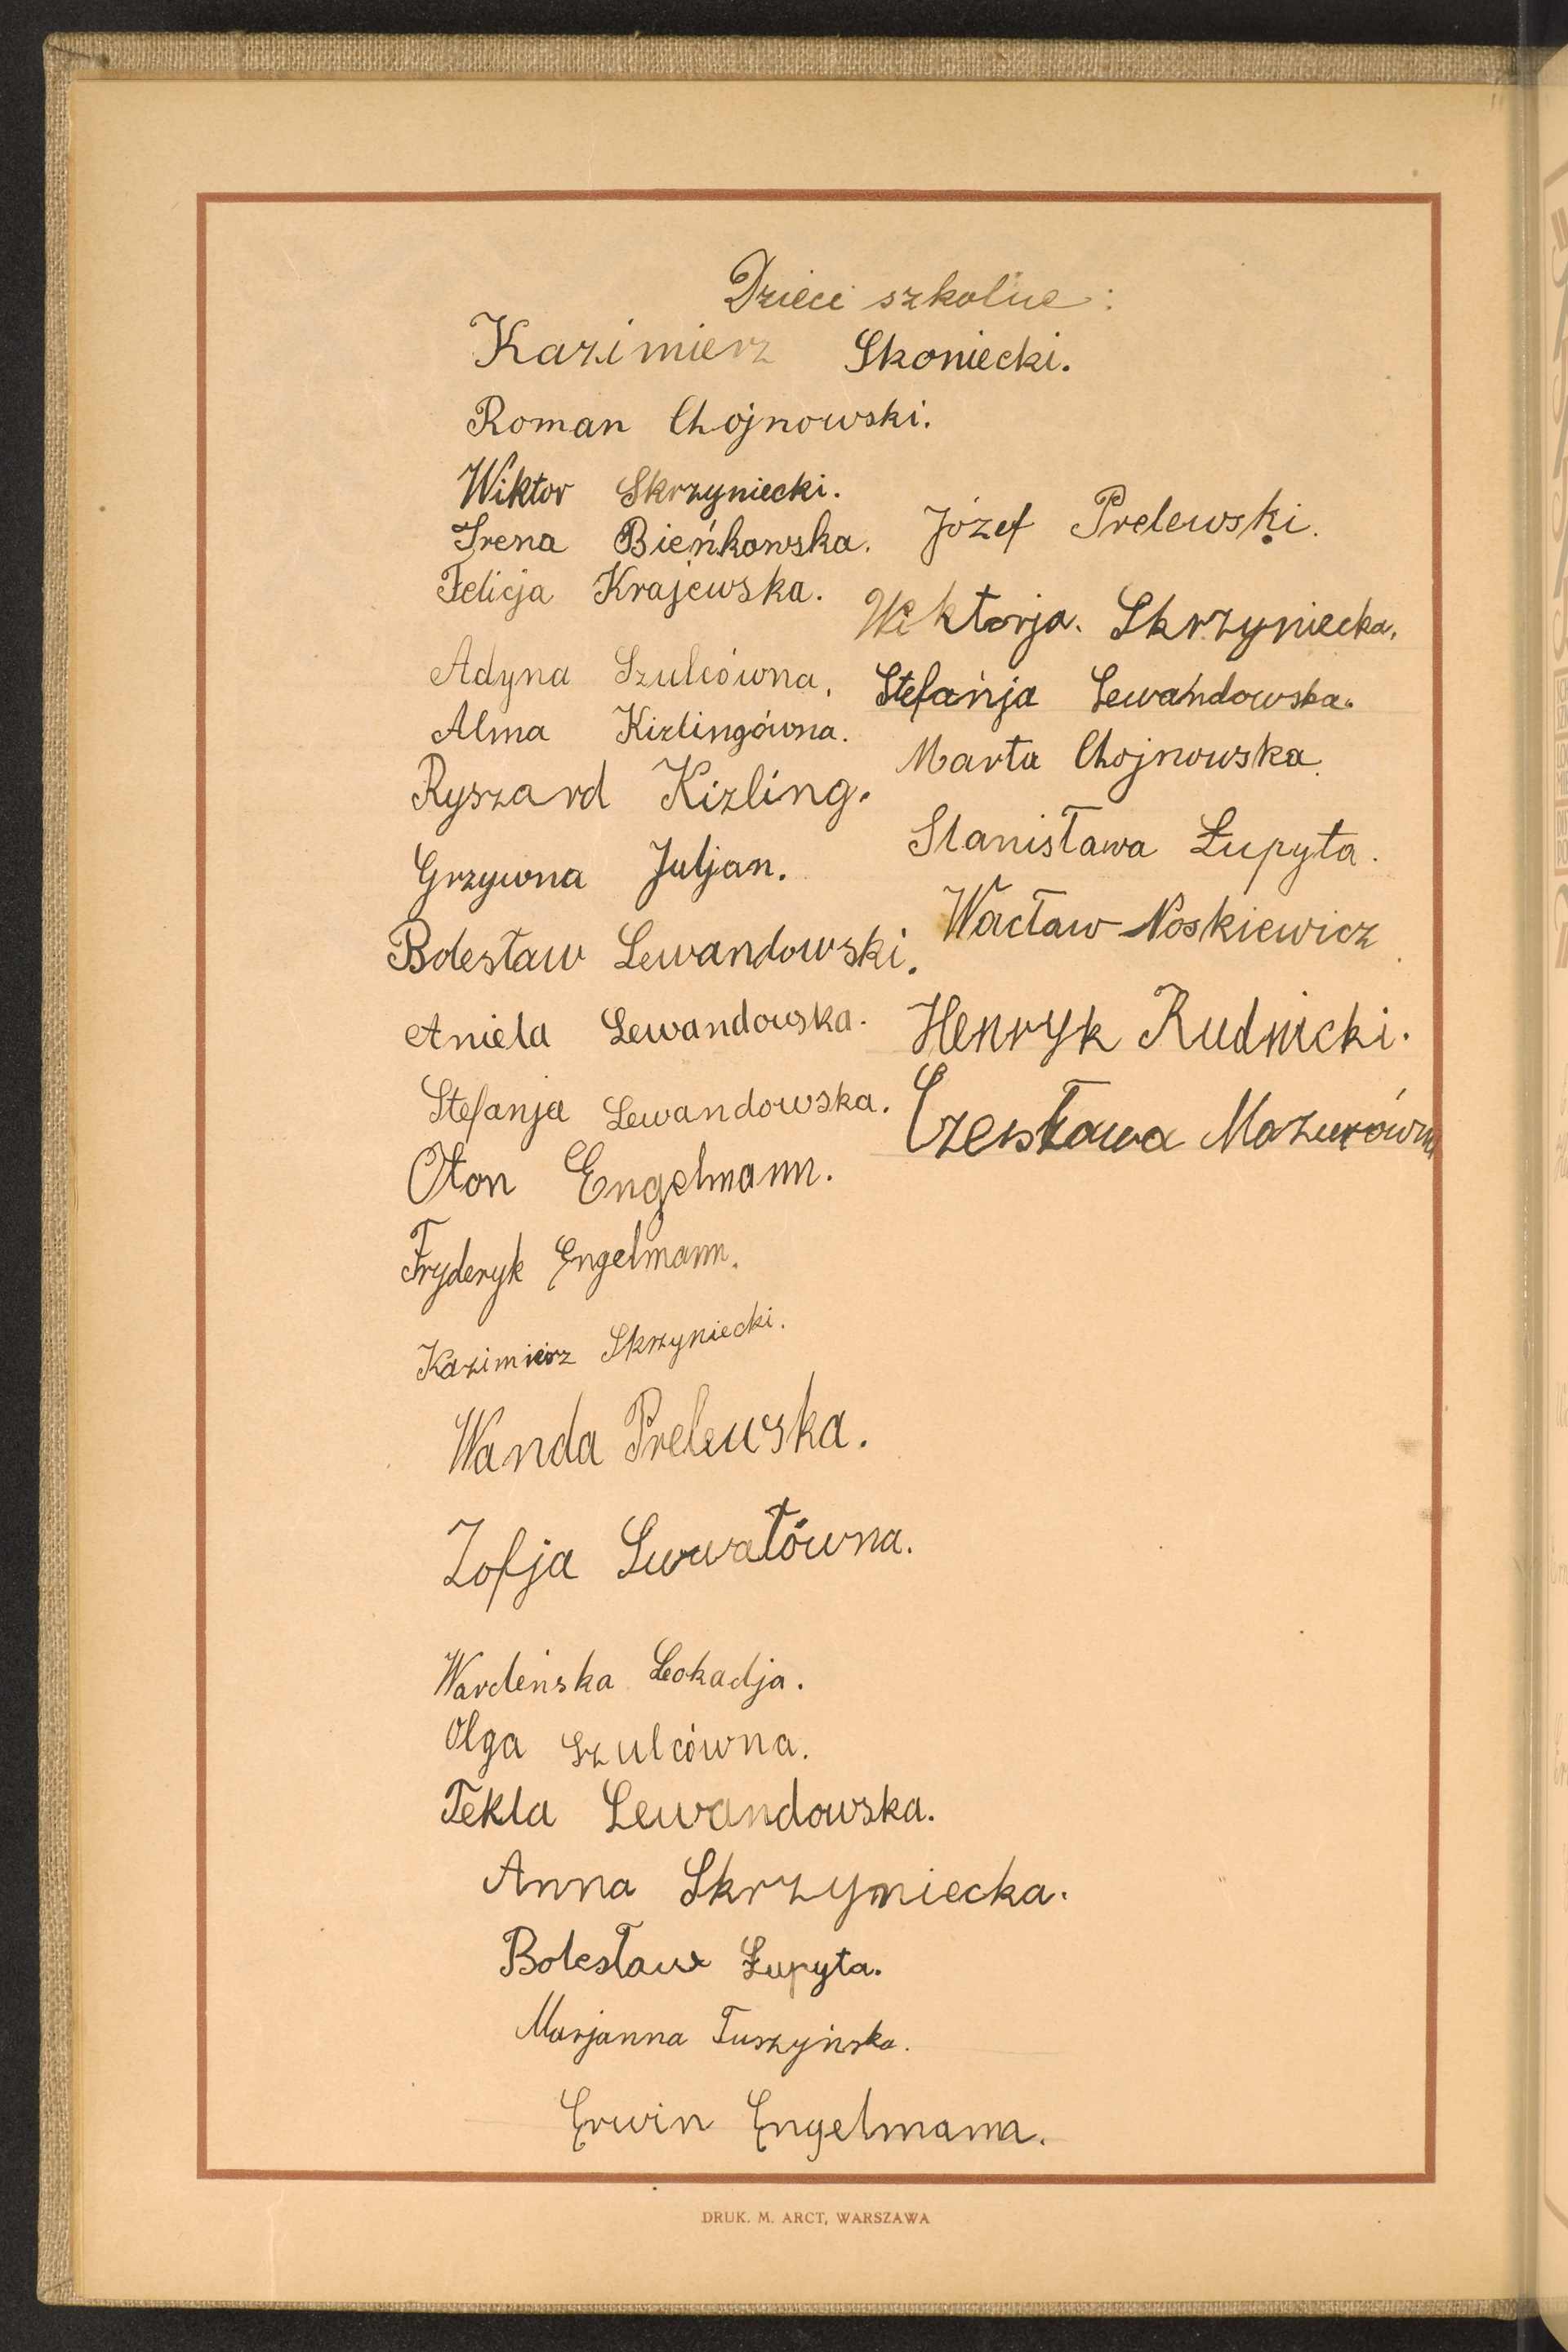 Dzieci szkolne:
Kazimierz Skoniecki.
Roman Chojnowski.
Wiktor Skrzyniecki.
Irena Bieńkowska.
Felicja Krajewska.
Adyna Szulcówna.
Alma Kizlingówna.
Ryszard Kizling.
Grzywna Juljan.
Bolesław Lewandowski.
Aniela Lewandowska.
Stefanja Lewandowska.
Oton Engelmann.
Fryderyk Engelmann.
Kazimierz Skrzyniecki.
Wanda Prelewska.
Zofja
Wardeńska Leokadja.
Olga Szulcówna.
Tekla Lewandowska.
Anna Skrzyniecka.
Bolesław Łupyta.
Marjanna Tuszyńska.
Erwin Engelmann.
Józef Prelewski.
Wiktorja. Skrzyniecka.
Stefańja Lewańdowska.
Marta Chojnowska.
Stanisława Łupyta.
Wacław Noskiewicz
Henryk Rudnicki.
Czesława Mazurówna
DRUK. M. ARCT, WARSZAWA